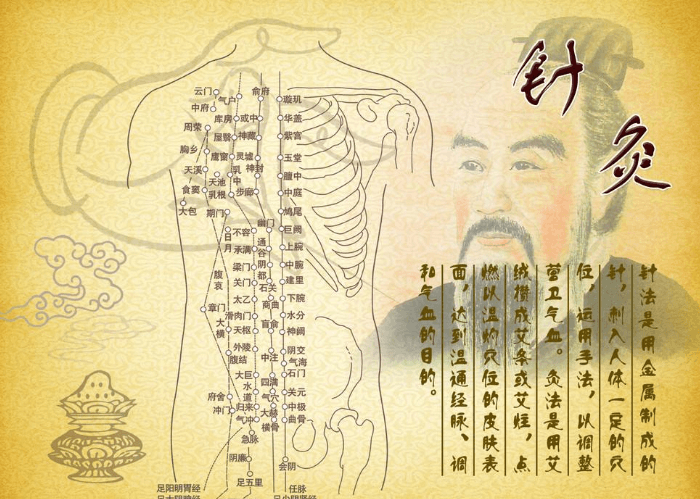 针灸
针法是用金属制成的
针，刺入人体一定的穴
位，运用手法，以调整
营卫气血。灸法是用艾
绒攒成艾条或艾炷，点
燃以温灼穴位的皮肤表
面，达到温通经脉、调
和气血的目的。
云门
气户
俞府
璇玑
中府
库房
或中
华盖
周荣
屋翳
神藏
紫宫
胸乡
膺窗
灵墟
玉堂
天溪
乳中
神封
膻中
天池
食窦
乳根
步廊
中庭
大包
期门
鸠尾
幽门
日月
不容
巨阙
通谷
承满
上脘
阴都
梁门
中脘
腹哀
关门
石关
建里
太乙
商曲
下脘
章门
滑肉门
水分
大横
天枢
肓俞
神阙
外陵
阴交
腹结
中注
气海
大巨
石门
水道
四满
府舍
气穴
关元
冲门
归来
大赫
中极
气冲
横骨
曲骨
急脉
阴廉
会阴
足五里
足阳明胃经
任脉
足太阴脾经
足少阴肾经